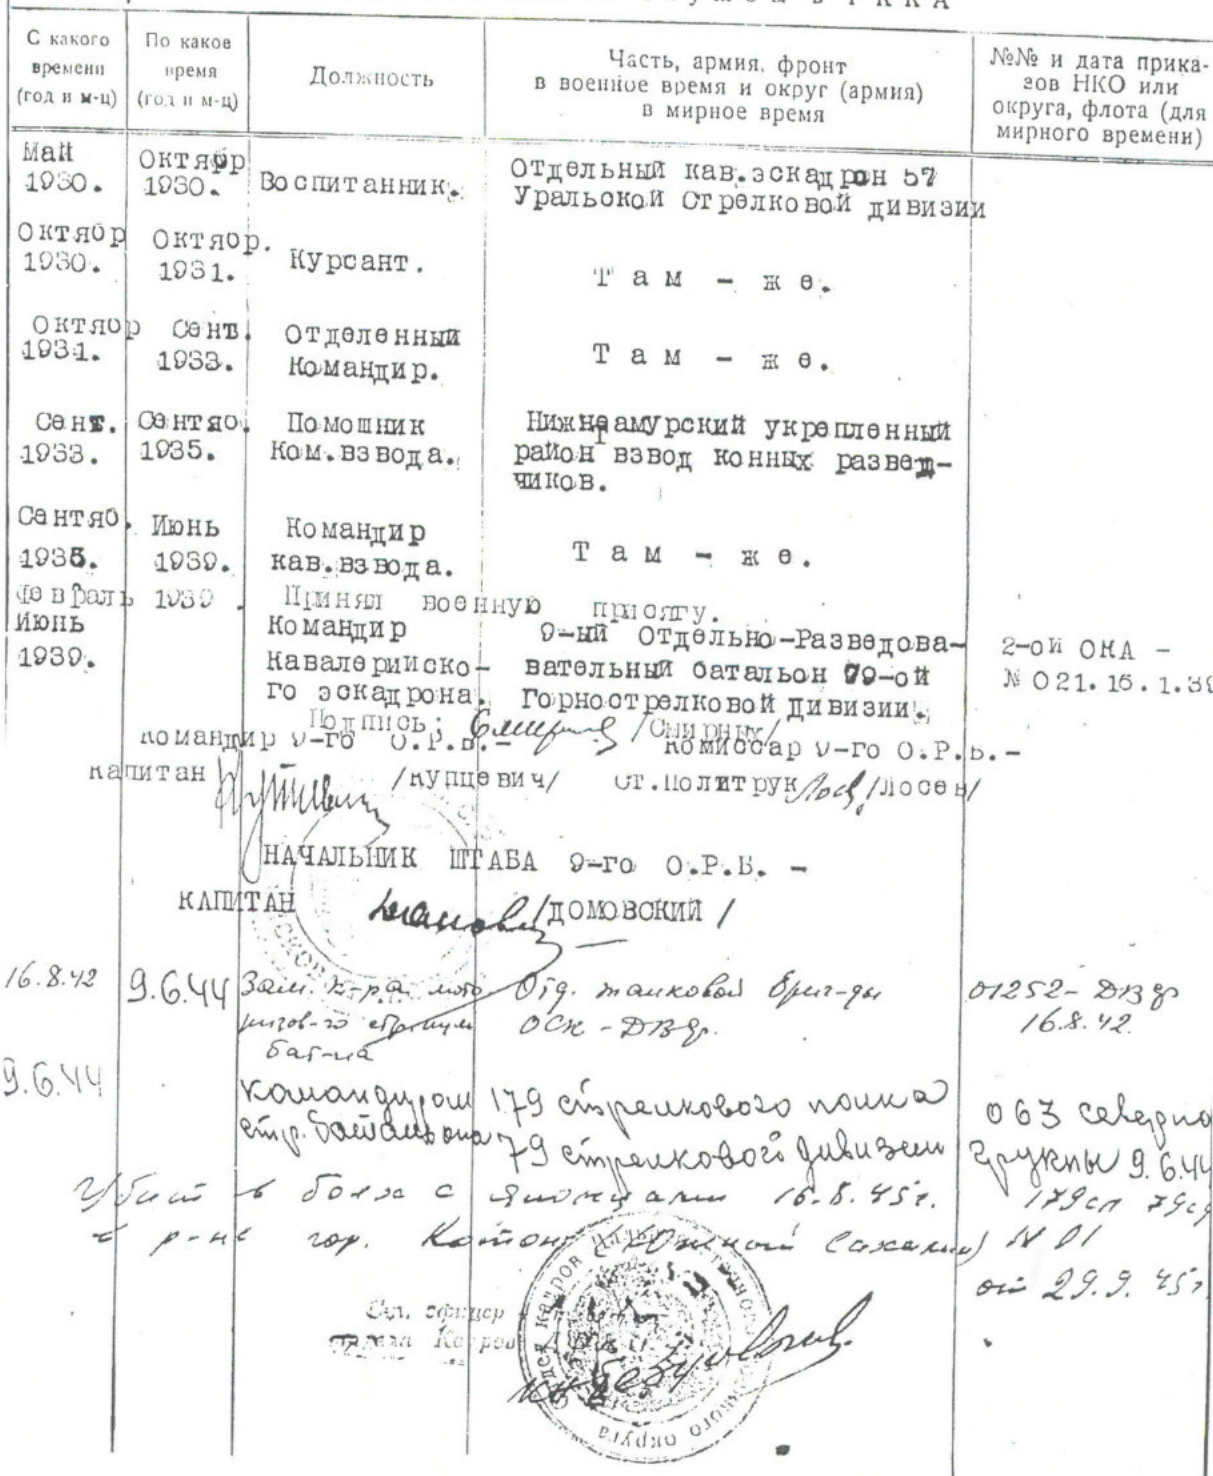 С какого времени (год и м-ц)
По какое время (год и м-ц)
Должность
Часть, армия, фронт
в военное время и округ (армия)
в мирное время
№№ и дата прика-
зов НКО или
округа, флота (для
мирного времени)
Май 1930.
Октябр 1930.
Воспитанник.
Отдельный кав.эскадрон 57
Уральской Стрелковой дивизии
Октябр 1930.
Октябр. 1931.
Курсант.
Т а м - ж е.
Октябр 1931.
Сент. 1933.
Отделенный
Командир.
Т а м - ж е.
Сент. 1933.
Сентяб. 1935.
Помошник
Ком.взвода.
Нижнеамурский укрепленный
район взвод конных развед-
чиков.
Сентяб. 1935.
Июнь 1939.
Командир
кав.взвода.
Т а м - ж е.
Февраль 1939. Принял военную присягу.
Июнь 1939.
Командир
Кавалерийско-
го эскадрона.
9-ый Отдельно-Разведова-
вательный батальон 79-ой
Горнострелковой дивизии.
2-ой ОКА -
№ 021.15.1.39
Подпись: /Смирных/
Командир 9-го О.Р.Б.- Комиссар 9-го О.Р.Б.-
Капитан /Купцевич/ Ст.Политрук /Лосев/
НАЧАЛЬНИК ШТАБА 9-го О.Р.Б. -
КАПИТАН /ДОМОВСКИЙ/
16.8.42
9.6.44
Зам. к-ра мото
ризов-го стрелков
бат-на
Отд. танковой бриг-ды
ОСК - ДВФ.
01252 - ДВФ
16.8.42.
9.6.44
командиром
стр. батальона
179 стрелкового полка
79 стрелковой дивизии
063 северной
группы 9.6.44
Убит в боях с японцами 16.8.45г.
в р-не гор. Котон (Южный Сахалин)
179сп 79сд
N 01
от 29.9.45г.